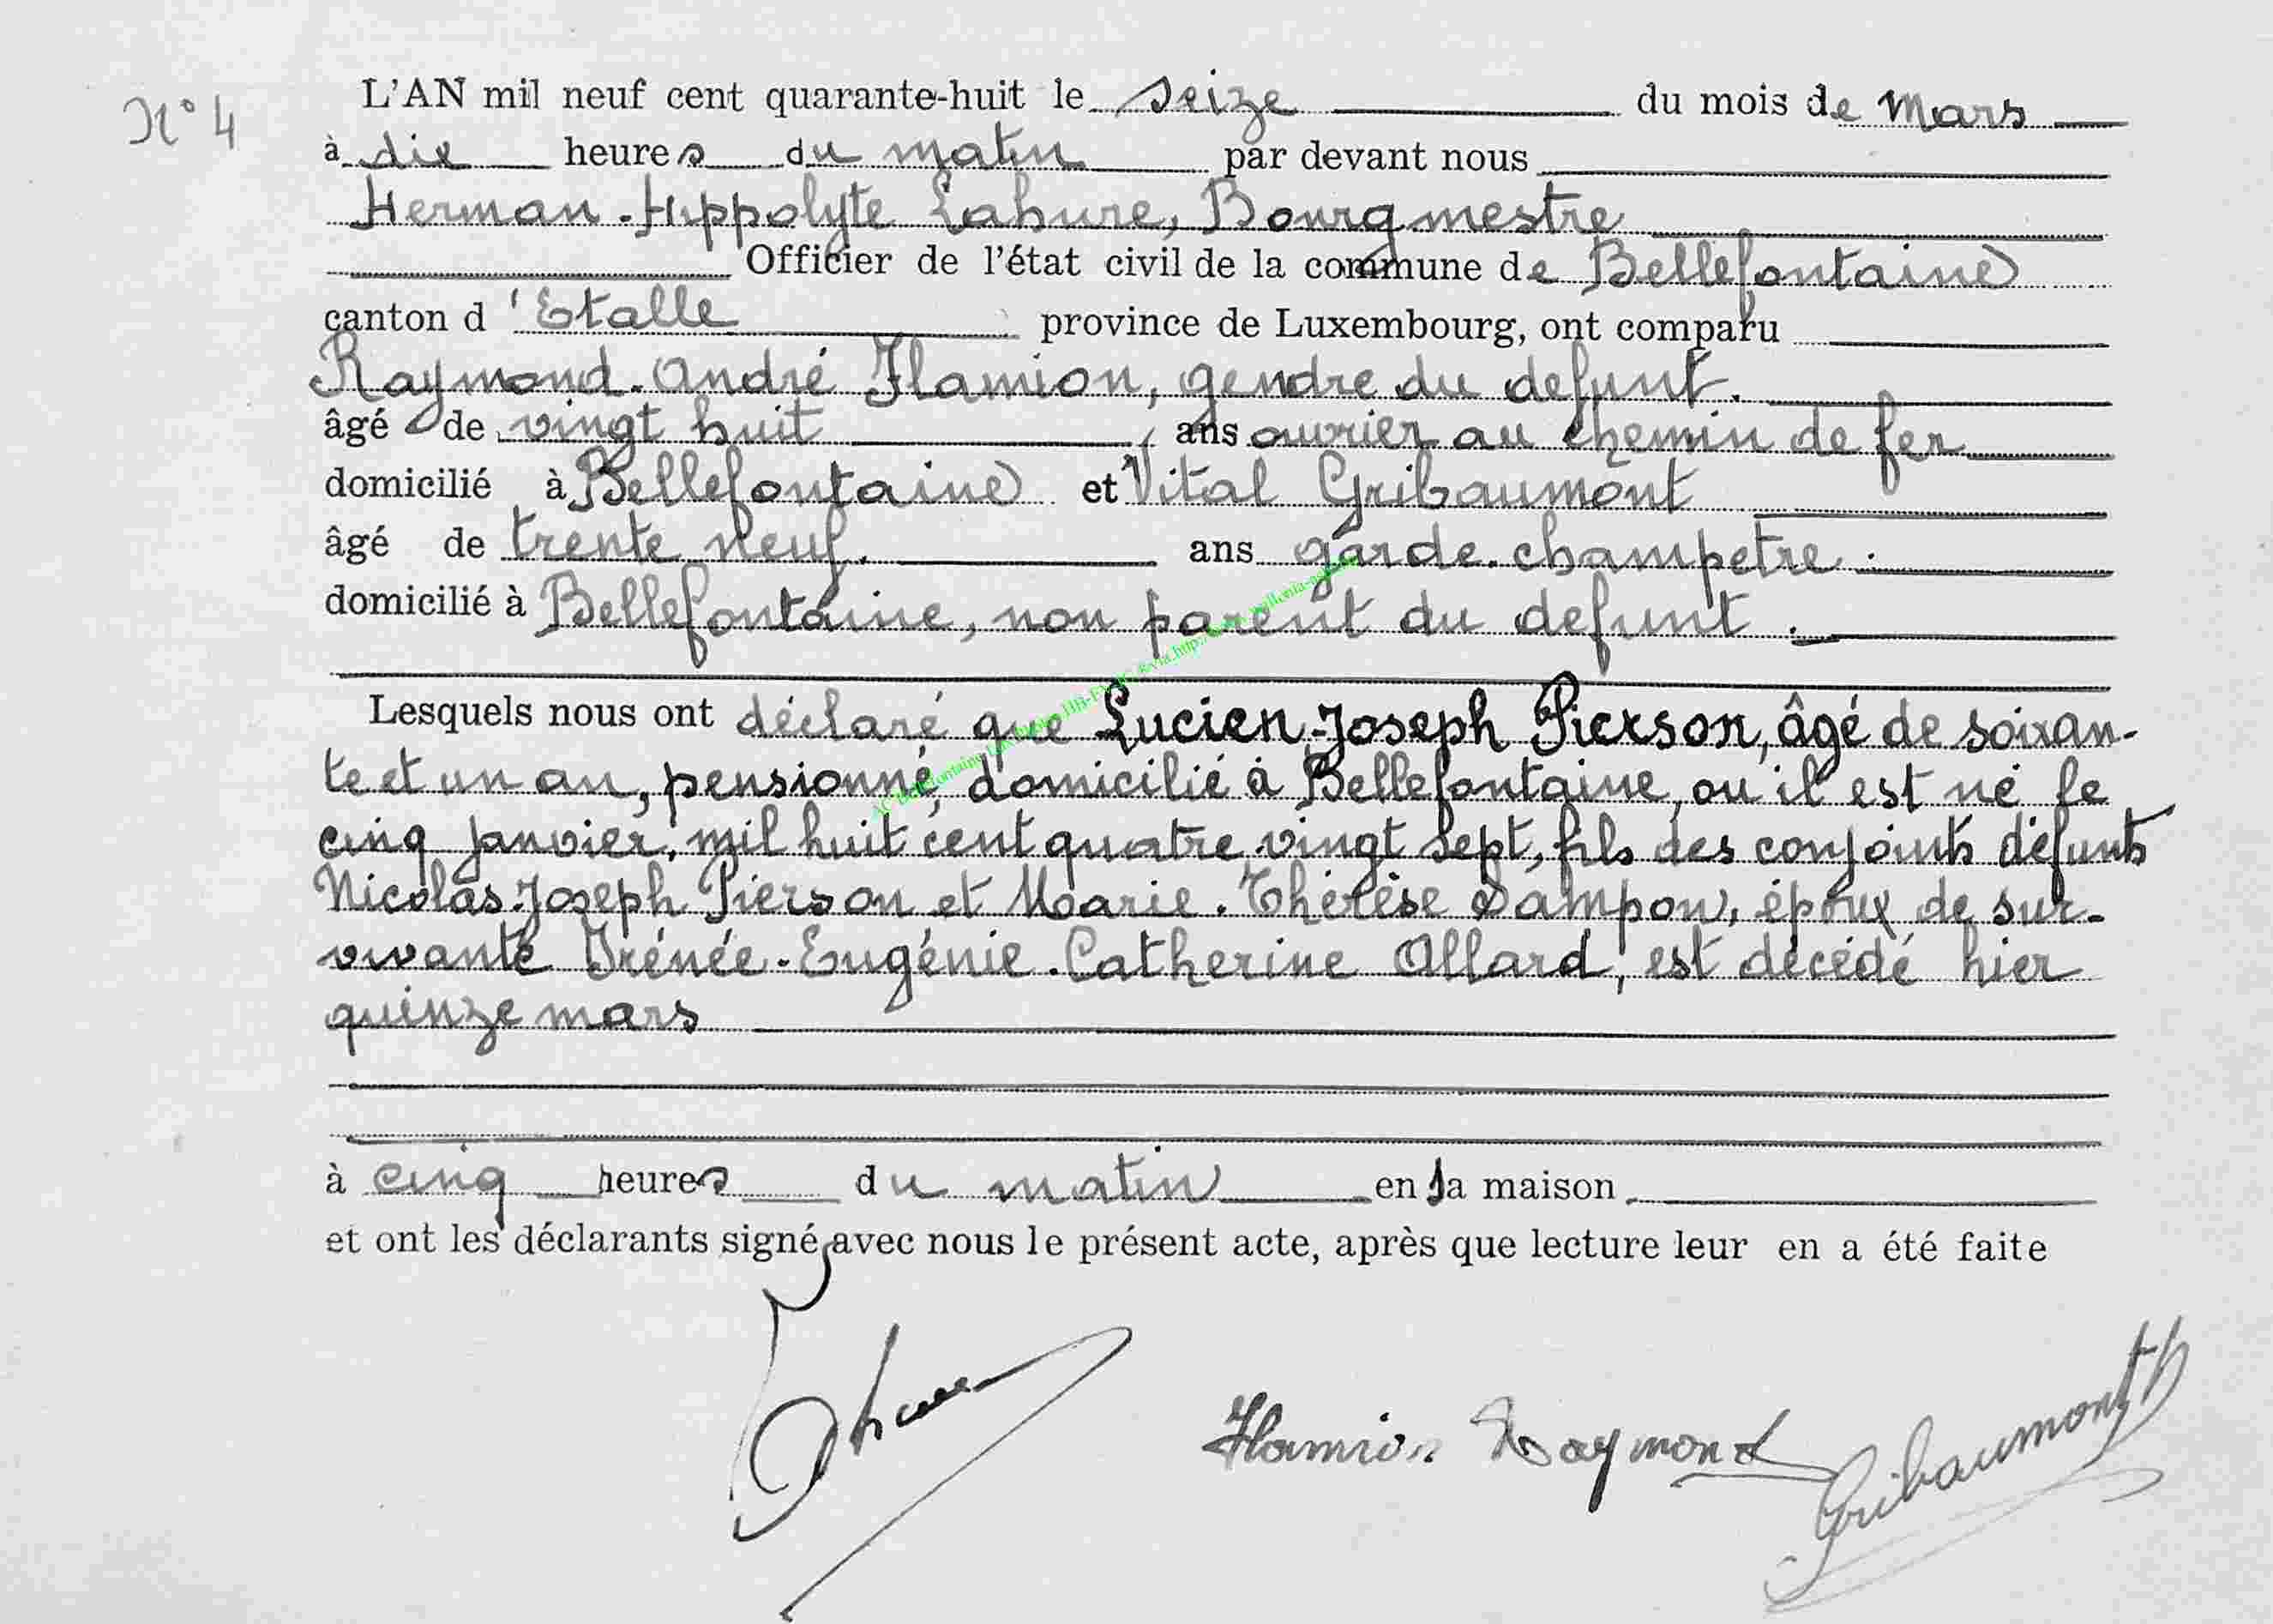 N° 4
L'AN mil neuf cent quarante-huit le seize du mois de Mars
à dix heures du matin par devant nous
Herman-Hippolyte Lahure, Bourgmestre
Officier de l'état civil de la commune de Bellefontaine
canton d'Etalle province de Luxembourg, ont comparu
Raymond-André Flamion, gendre du defunt.
âgé de vingt huit, ans ouvrier au chemin de fer
domicilié à Bellefontaine et Vital Gribaumont
âgé de trente neuf. ans garde-champetre.
domicilié à Bellefontaine, non parent du defunt.
Lesquels nous ont déclaré que Lucien-Joseph Pierson, âgé de soixan-
te et un an, pensionné, domicilié à Bellefontaine, ou il est né le
cinq janvier, mil huit cent quatre vingt sept, fils des conjoints défunts
Nicolas-Joseph Pierson et Marie-Thérèse Sampon, époux de sur-
vivante Irénée-Eugénie-Catherine Allard, est décédé hier
quinze mars
à cinq heures du matin en sa maison
et ont les déclarants signé avec nous le présent acte, après que lecture leur en a été faite
Flamion Raymond Gribaumont